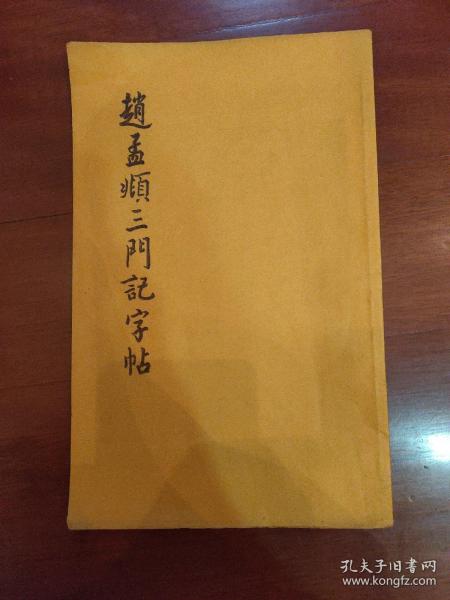 趙孟頫三門記字帖
孔夫子旧书网
www.kongfz.com